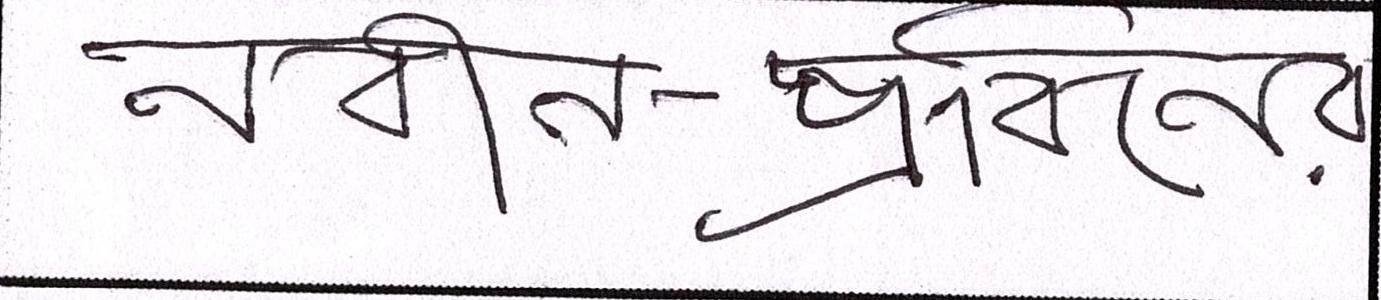 নবীন-প্রবিনের